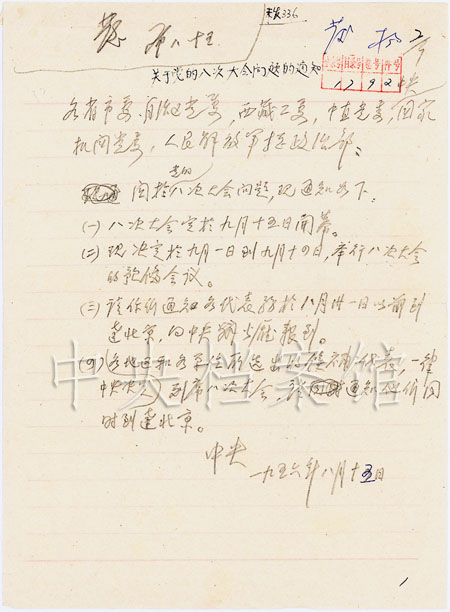 关于党的八次大会问题的通知
各省市委,自治区党委,西藏工委,中直党委,国家
机关党委,人民解放军总政治部:
党的
关于八次大会问题,现通知如下:
(一)八次大会定于九月十五日开幕。
(二)现决定于九月一日到九月十四日,举行八次大会
的预备会议。
(三)请你们通知各代表务于八月廿一日以前到
达北京,向中央办公厅报到。
(四)各地区和各单位所选出的候补代表,一律
到第八次大会,通知他们同
时到达北京。
中央
一九五六年八月十五日
中央档案馆
1